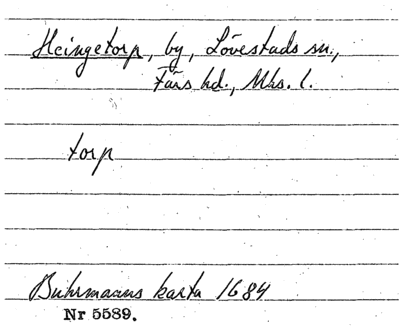 Heingetorp, by, Lövestads sn.,
Färs hd., Mhs. l.
torp
Buhrmanns karta 1684
Nr 5589.